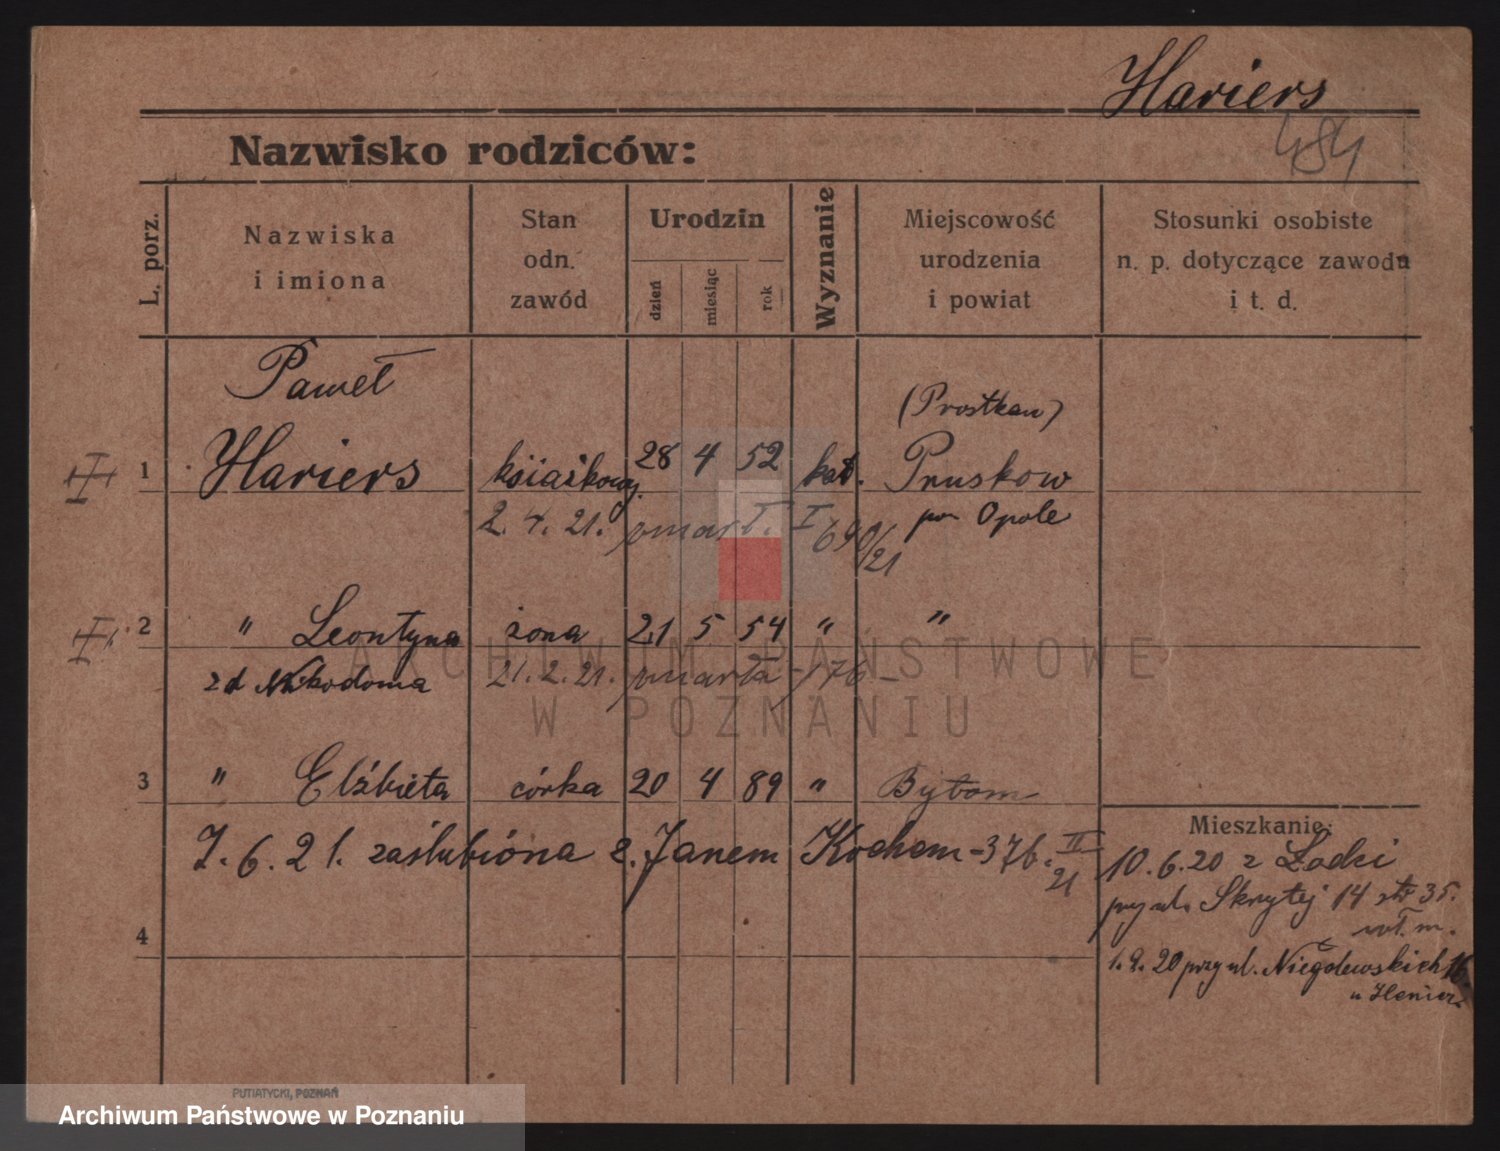 Hariers
484
Nazwisko rodziców:
L. porz.
Nazwiska
i imiona
Stan
odn.
zawód
Urodzin
dzień
miesiąc
rok
Wyznanie
Miejscowość
urodzenia
i powiat
Stosunki osobiste
n. p. dotyczące zawodu
i t. d.
Paweł
(Prostkau)
1 Hariers książkowy. 28 4 52 kat. Pruskow
2. 4. 21. umarł. I 690/21 pow Opole
2 " Leontyna żona 21 5 54 " "
zd Nikodoma 21. 2. 21. umarła 176
3 " Elżbieta córka 20 4 89 " Bytom
7. 6. 21. zaślubióna z. Janem Kochem - 376. II
21
4
Mieszkanie:
10. 6. 20 z Łodzi
przy ul. Skrytej 14 35.
1. 9. 20 przy ul. Niegolewskich 16
u
PUTIATYCKI, POZNAŃ
ARCHIWUM PAŃSTWOWE
W POZNANIU
Archiwum Państwowe w Poznaniu